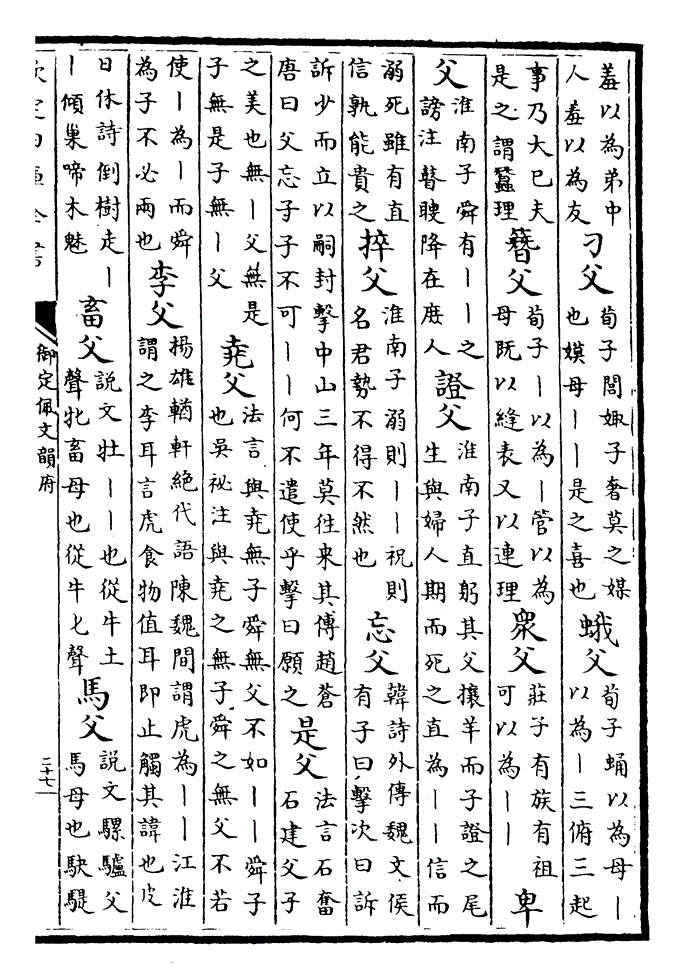 羞以為弟中人羞以為友 刁父 荀子閭娵子奢莫之媒也嫫母丨丨是之喜也 蛾父 荀子蛹以為母丨以為丨三俯三起
事乃大已夫是之謂蠶理 簪父 荀子丨以為丨管以為母既以縫表又以連理 衆父 莊子有族有祖可以為丨丨 卑
父 淮南子舜有丨丨之謗注瞽瞍降在庻人 證父 淮南子直躬其父攘羊而子證之尾生與婦人期而死之直為丨丨信而
溺死雖有直信孰能貴之 捽父 淮南子溺則丨丨祝則名君勢不得不然也 忘父 韓詩外傳魏文侯有子曰擊次曰訴
訴少而立以嗣封擊中山三年莫往来其傅趙蒼唐曰父忘子子不可丨丨何不遣使乎擊曰願之 是父 法言石奮石建父子
之美也無丨父無是子無是子無丨父 堯父 法言與堯無子舜無父不如丨丨舜子也吳祕注與堯之無子舜之無父不若
使丨為丨而舜為子不必兩也 李父 揚雄輶軒絕代語陳魏間謂虎為丨丨江淮謂之李耳言虎食物值耳即止觸其諱也皮
日休詩倒樹走丨丨傾巢啼木魅 畜父 說文牡丨丨也從牛土聲牝畜母也從牛匕聲 馬父 說文騾驢父馬母也駃騠
欽定四庫全書
御定佩文韻府
二十七